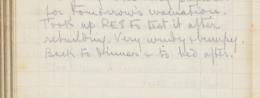 for tomorrow's evacuations.
Took up RE8 to test it after
rebuilding. Very windy & bumpy.
Back to dinner & to bed after.